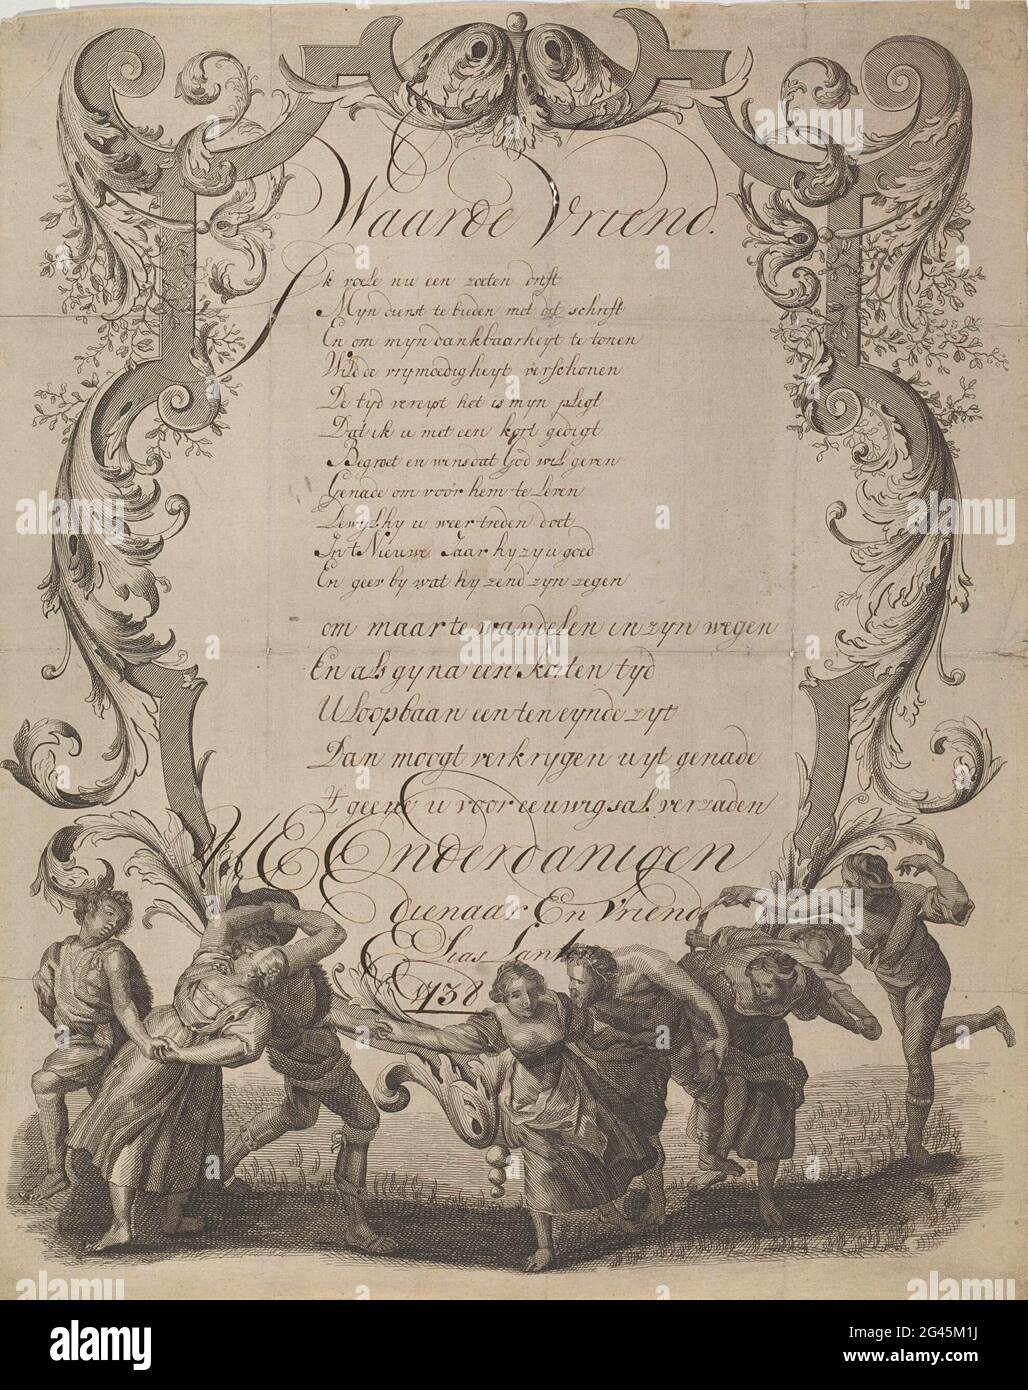 Waarde Vriend.
Ik voele nu een zoeten drift
Myn dienst te bieden met dit schrift
En om myn dankbaarheyt te tonen
Wild de vrymoedigheyt verschonen
De tyd vereyst het is myn plegt
Dat ik u met een kort gedigt
Begroet en wens dat God wil geven
Genade om voor hem te Leven
Dewyl hy u weer treden doet
In t Nieuwe Jaar hy zy u goed
En geev by wat hy zend zyn zegen
om maar te wandelen in zyn wegen
En als gy na een korten tyd
U loopbaan eens ten eynde zyt
Dan moogt verkrygen uyt genade
't geene u voor eeuwig sal verzaden
UE Onderdanigen
dienaar En Vriend
Elias
1738
alamy
alamy
Image ID: 2G45M1J
www.alamy.com